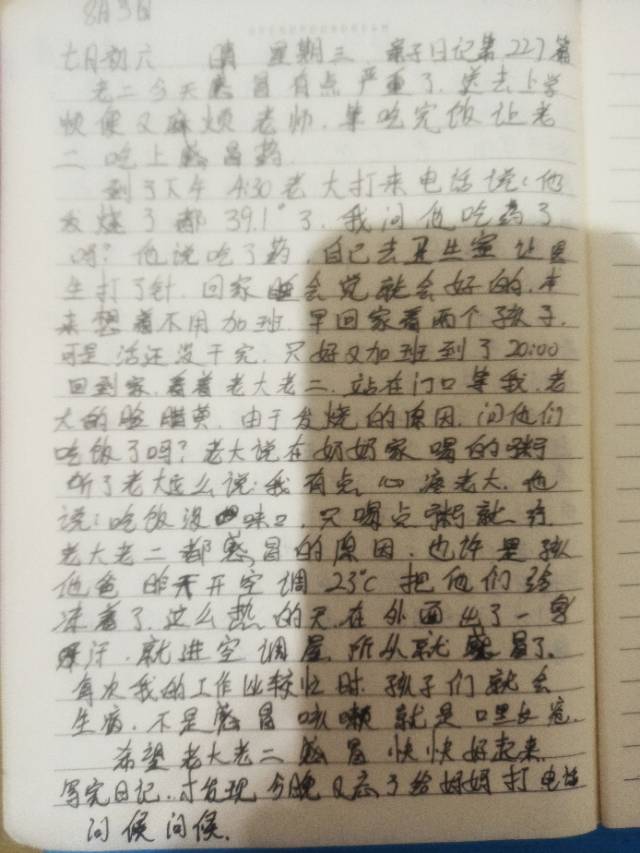 8月3日
七月初六 晴 星期三 亲子日记第227篇
老二今天感冒有点严重了,送去上学
顺便又麻烦老师,等吃完饭让老
二吃上感冒药.
到了下午4:30老大打来电话说:他
发烧了都39.1°了,我问他吃药了
吗?他说吃了药,自己去卫生室让医
生打了针.回家睡会觉就会好的,本
来想着不用加班.早回家看两个孩子.
可是活还没干完,只好又加班到了20:00
回到家,看着老大老二,站在门口等我.老
大的脸腊黄,由于发烧的原因,问他们
吃饭了吗?老大说在奶奶家喝的粥
听了老大这么说,我有点心疼老大,他
说:吃饭没味口,只喝点粥就行
老大老二都感冒的原因,也许是孩
他爸昨天开空调23℃把他们给
冻着了,这么热的天,在外面出了一身
汗,就进空调屋,所以就感冒了.
每次我的工作比较忙时,孩子们就会
生病,不是感冒咳嗽就是口里长疮.
希望老大老二感冒快快好起来
写完日记,才发现今晚又忘了给妈妈打电话
问候问候.